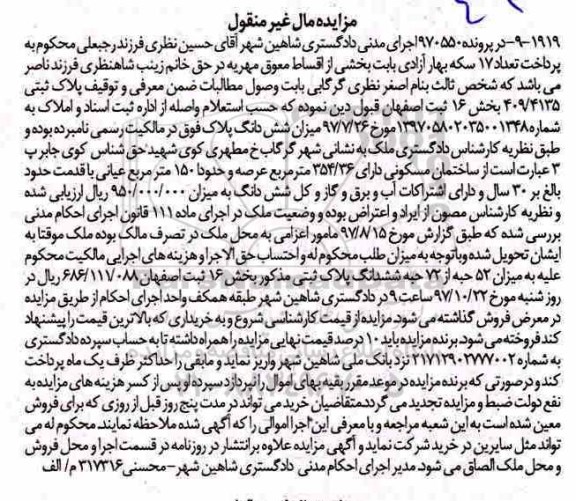 مزایده مال غیر منقول
۱۹۱۹-۹-در پرونده ۹۷۰۵۵۰ اجرای مدنی دادگستری شاهین شهر آقای حسین نظری فرزند رجبعلی محکوم به
پرداخت تعداد ۱۷ سکه بهار آزادی بابت بخشی از اقساط معوق مهریه در حق خانم زینب شاهنظری فرزند ناصر
می باشد که شخص ثالث بنام اصغر نظری گرگابی بابت وصول مطالبات ضمن معرفی و توقیف پلاک ثبتی
۴۰۹/۴۱۳۵ بخش ۱۶ ثبت اصفهان قبول دین نموده که حسب استعلام واصله از اداره ثبت اسناد و املاک به
شماره ۱۳۹۷۰۵۸۰۲۰۳۵۰۰۱۳۴۸ مورخ ۹۷/۷/۲۶ میزان شش دانگ پلاک فوق در مالکیت رسمی نامبرده بوده و
طبق نظریه کارشناس دادگستری ملک به نشانی شهر گرگاب خ مطهری کوی شهید حق شناس کوی جابر پ
۳ عبارت است از ساختمان مسکونی دارای ۳۵۴/۳۶ مترمربع عرصه و حدودا ۱۵۰ متر مربع عیانی با قدمت حدود
بالغ بر ۳۰ سال و دارای اشتراکات آب و برق و گاز و کل شش دانگ به میزان ۹۵۰/۰۰۰/۰۰۰ ریال ارزیابی شده
و نظریه کارشناس مصون از ایراد و اعتراض بوده و وضعیت ملک در اجرای ماده ۱۱۱ قانون اجرای احکام مدنی
بررسی شده که طبق گزارش مورخ ۹۷/۸/۱۵ مامور اعزامی به محل ملک در تصرف مالک بوده ملک موقتا به
ایشان تحویل شده وباتوجه به میزان طلب محکوم له و احتساب حق الاجرا و هزینه های اجرایی مالکیت محکوم
علیه به میزان ۵۲ حبه از ۷۲ حبه ششدانگ پلاک ثبتی مذکور بخش ۱۶ ثبت اصفهان ۶۸۶/۱۱۱/۰۸۸ ریال در
روز شنبه مورخ ۹۷/۱۰/۲۲ ساعت ۹ در دادگستری شاهین شهر طبقه همکف واحد اجرای احکام از طریق مزایده
در معرض فروش گذاشته می شود مزایده از قیمت کارشناسی شروع و به خریداری که بالاترین قیمت را پیشنهاد
کند فروخته می شود. برنده مزایده باید ۱۰ درصد قیمت نهایی مزایده را همراه داشته تا به حساب سپرده دادگستری
به شماره ۲۱۷۱۲۹۰۲۷۷۷۰۰۲ نزد بانک ملی شاهین شهر واریز نماید و مابقی را حداکثر ظرف یک ماه پرداخت
کند و درصورتی که برنده مزایده در موعد مقرر بقیه بهای اموال را نپردازد سپرده او پس از کسر هزینه های مزایده به
نفع دولت ضبط و مزایده تجدید می گردد. متقاضیان خرید می تواند در مدت پنج روز قبل از روزی که برای فروش
معین شده است به این شعبه مراجعه و با معرفی این اجرا اموالی را که آگهی شده ملاحظه نمایند محکوم له می
تواند مثل سایرین در خرید شرکت نماید و آگهی مزایده علاوه بر انتشار در روزنامه در قسمت اجرا و محل فروش
و محل ملک الصاق می شود. مدیر اجرای احکام مدنی دادگستری شاهین شهر-محسنی ۳۱۷۳۱۶ م/ الف